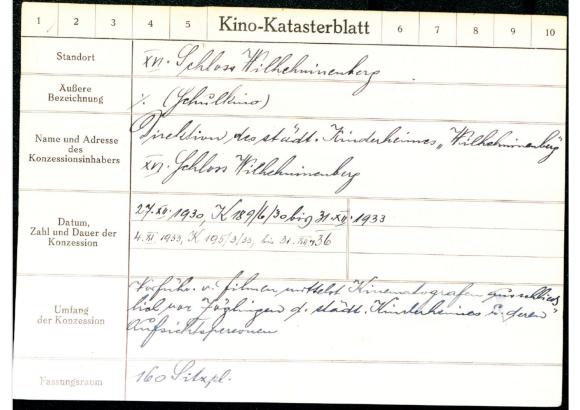 1 2 3 4 5 Kino-Katasterblatt 6 7 8 9 10
Standort
XVI. Schloss Wilhelminenberg
Äußere
Bezeichnung
%. (Schulkino)
Name und Adresse
des
Konzessionsinhabers
Direktion des städt. Kinderheimes „Wilhelminenberg"
XVI. Schloss Wilhelminenberg
Datum,
Zahl und Dauer der
Konzession
27.XII.1930, K 189/6/30 bis 31.XII.1933
4.XI.1933, K 195/3/33, bis 31.XII.936
Umfang
der Konzession
Vorführ. v. Filmen mittelst Kinematografen ausschliess
lich vor Zöglingen d. städt. Kinderheimes u. deren
Aufsichtspersonen
Fassungsraum
160 Sitzpl.